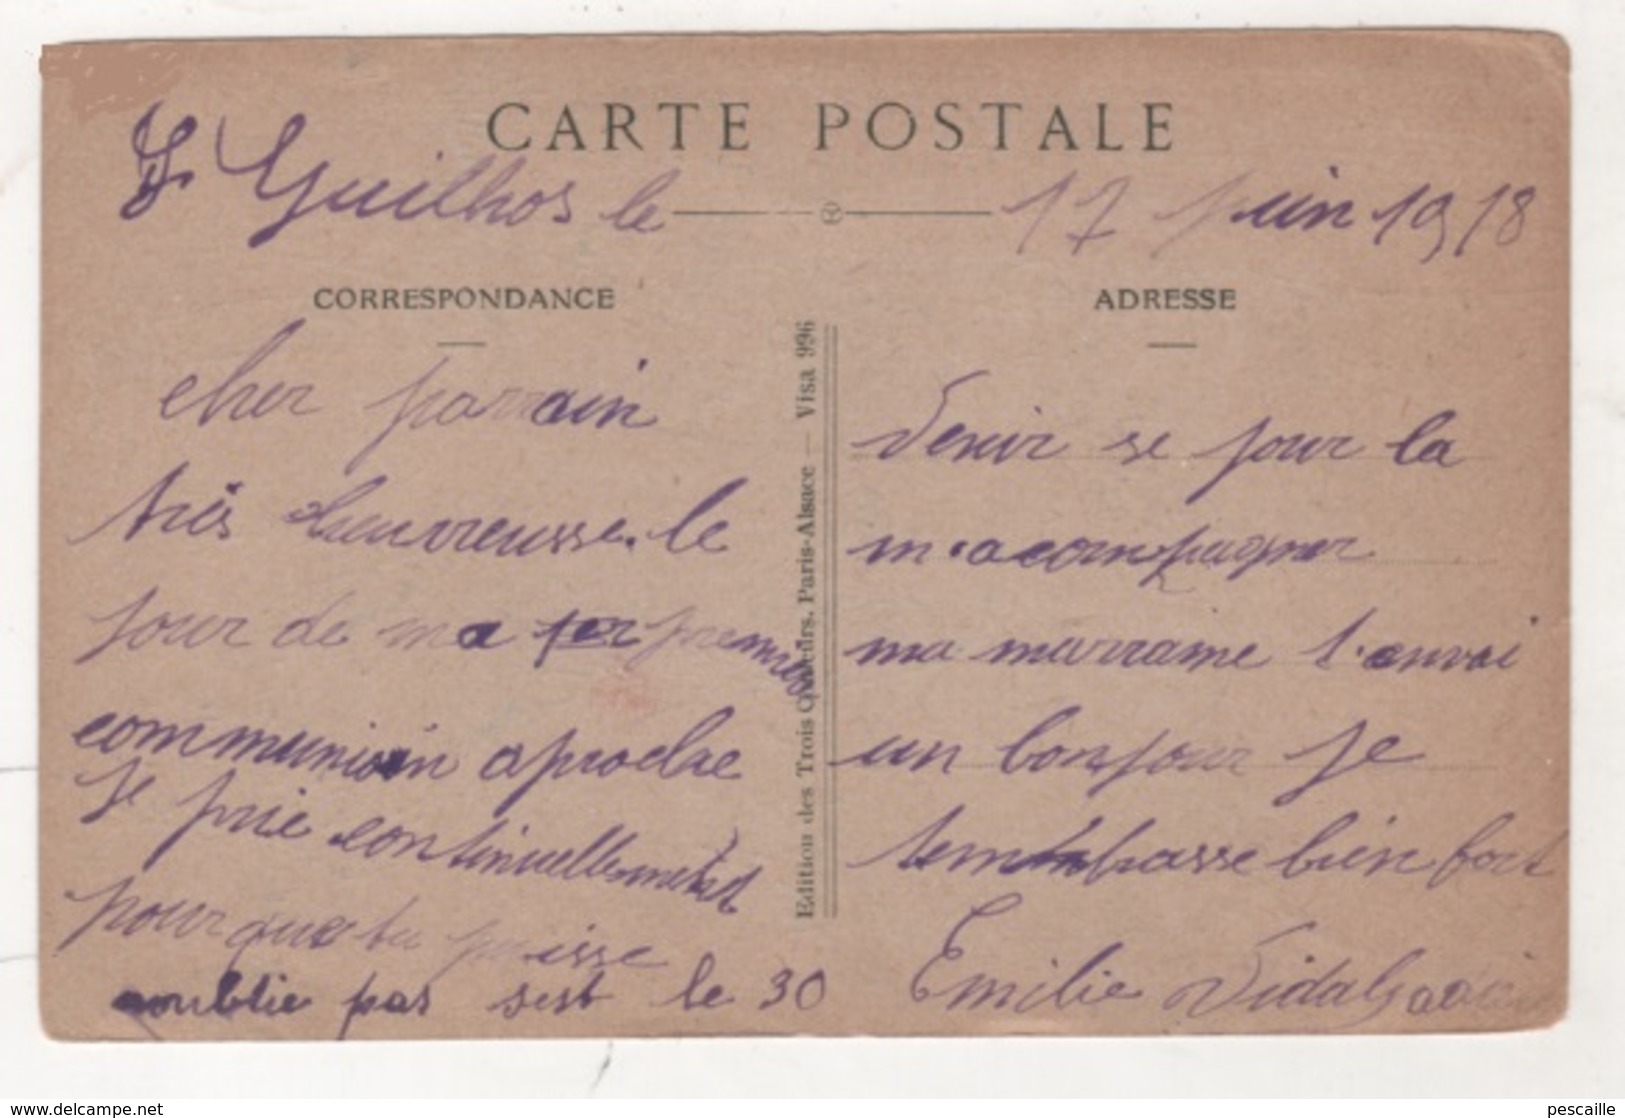 CARTE POSTALE
St Guilhos le 17 juin 1918
CORRESPONDANCE
cher parrain
très heurreusse. le
jour de ma per premier
communion aproche
Je prie continuellement
pour que tu puisse
oublie pas sest le 30
Edition des Trois Couleurs. Paris-Alsace — Visa 996
ADRESSE
Venir se jour la
m'acompagner
ma marraine t'envoi
un bonjour Je
tembrasse bien fort
Emilie Vidal
pescaille
www.delcampe.net